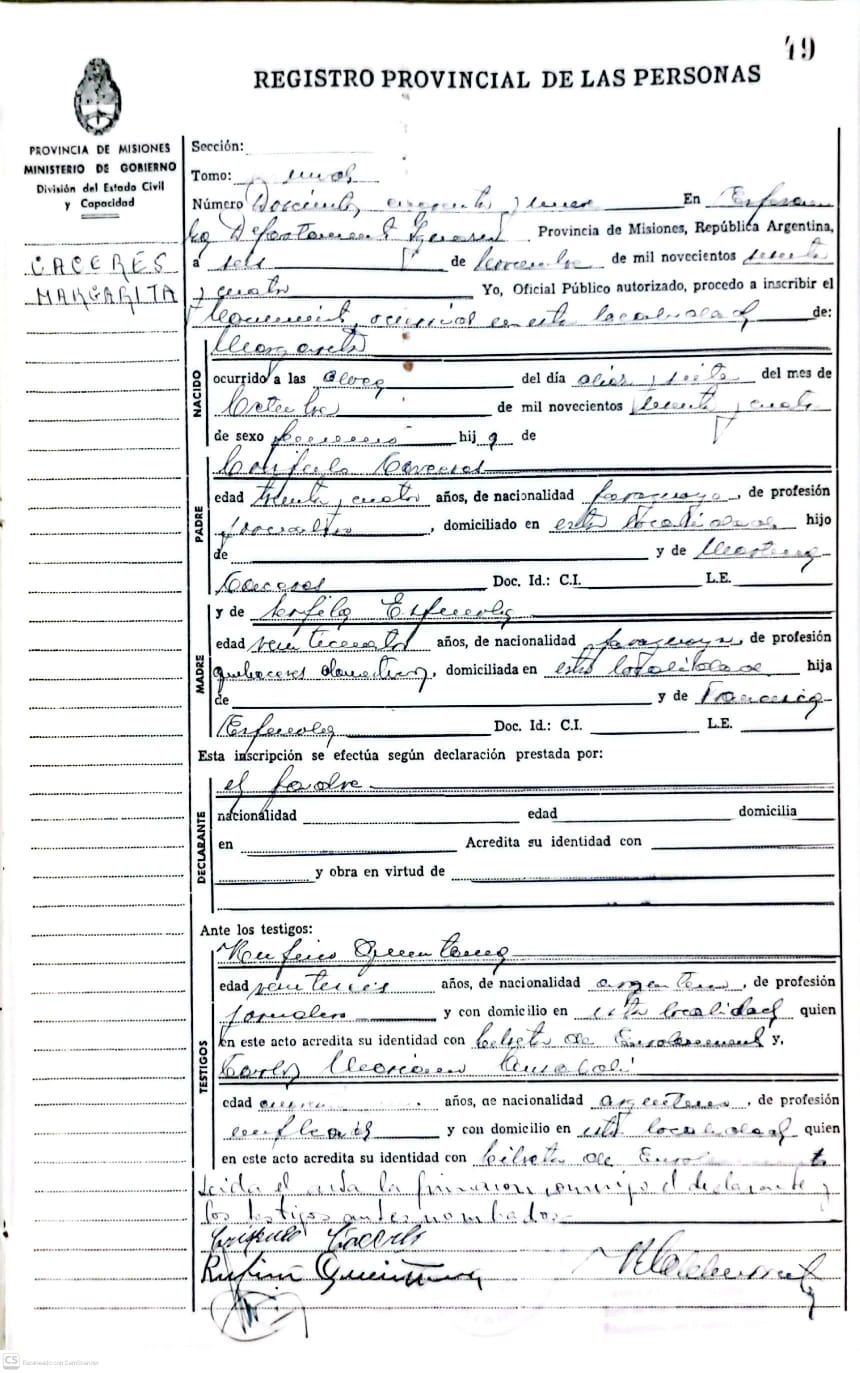 49
REGISTRO PROVINCIAL DE LAS PERSONAS
PROVINCIA DE MISIONES
MINISTERIO DE GOBIERNO
División del Estado Civil
y Capacidad
CACERES
MARGARITA
Sección:
Tomo:
Número Doscientos cincuenta y nueve En Esperan
za Departamento Iguazú. Provincia de Misiones, República Argentina,
a seis de Noviembre de mil novecientos sesenta
y cuatro Yo, Oficial Público autorizado, procedo a inscribir el
Nacimiento, ocurrido en esta localidad de:
NACIDO
Margarita
ocurrido a las doce del día diez y siete del mes de
Octubre de mil novecientos sesenta y cuatro
de sexo femenino hija de
PADRE
Crispulo Caceres
edad treinta y cuatro años, de nacionalidad paraguaya, de profesión
jornalero, domiciliado en esta localidad hijo
de y de
Caceres Doc. Id.: C.I. L.E.
MADRE
y de Espinola
edad veinticuatro años, de nacionalidad paraguaya, de profesión
quehaceres domesticos, domiciliada en esta localidad hija
de y de Francisca
Espinola Doc. Id.: C.I. L.E.
Esta inscripción se efectúa según declaración prestada por:
DECLARANTE
el padre
nacionalidad edad domicilia
en Acredita su identidad con
y obra en virtud de
Ante los testigos:
TESTIGOS
Rufino Quintana
edad años, de nacionalidad argentino, de profesión
jornalero y con domicilio en esta localidad quien
en este acto acredita su identidad con Libreta de Enrolamiento y,
Carlos Mariano
edad años, de nacionalidad argentino, de profesión
empleado y con domicilio en esta localidad quien
en este acto acredita su identidad con Libreta de
Leida el acta la firmaron conmigo el declarante y
los testigos antes nombrados
Crispulo Caceres
Rufino Quintana
CS Escaneado con CamScanner